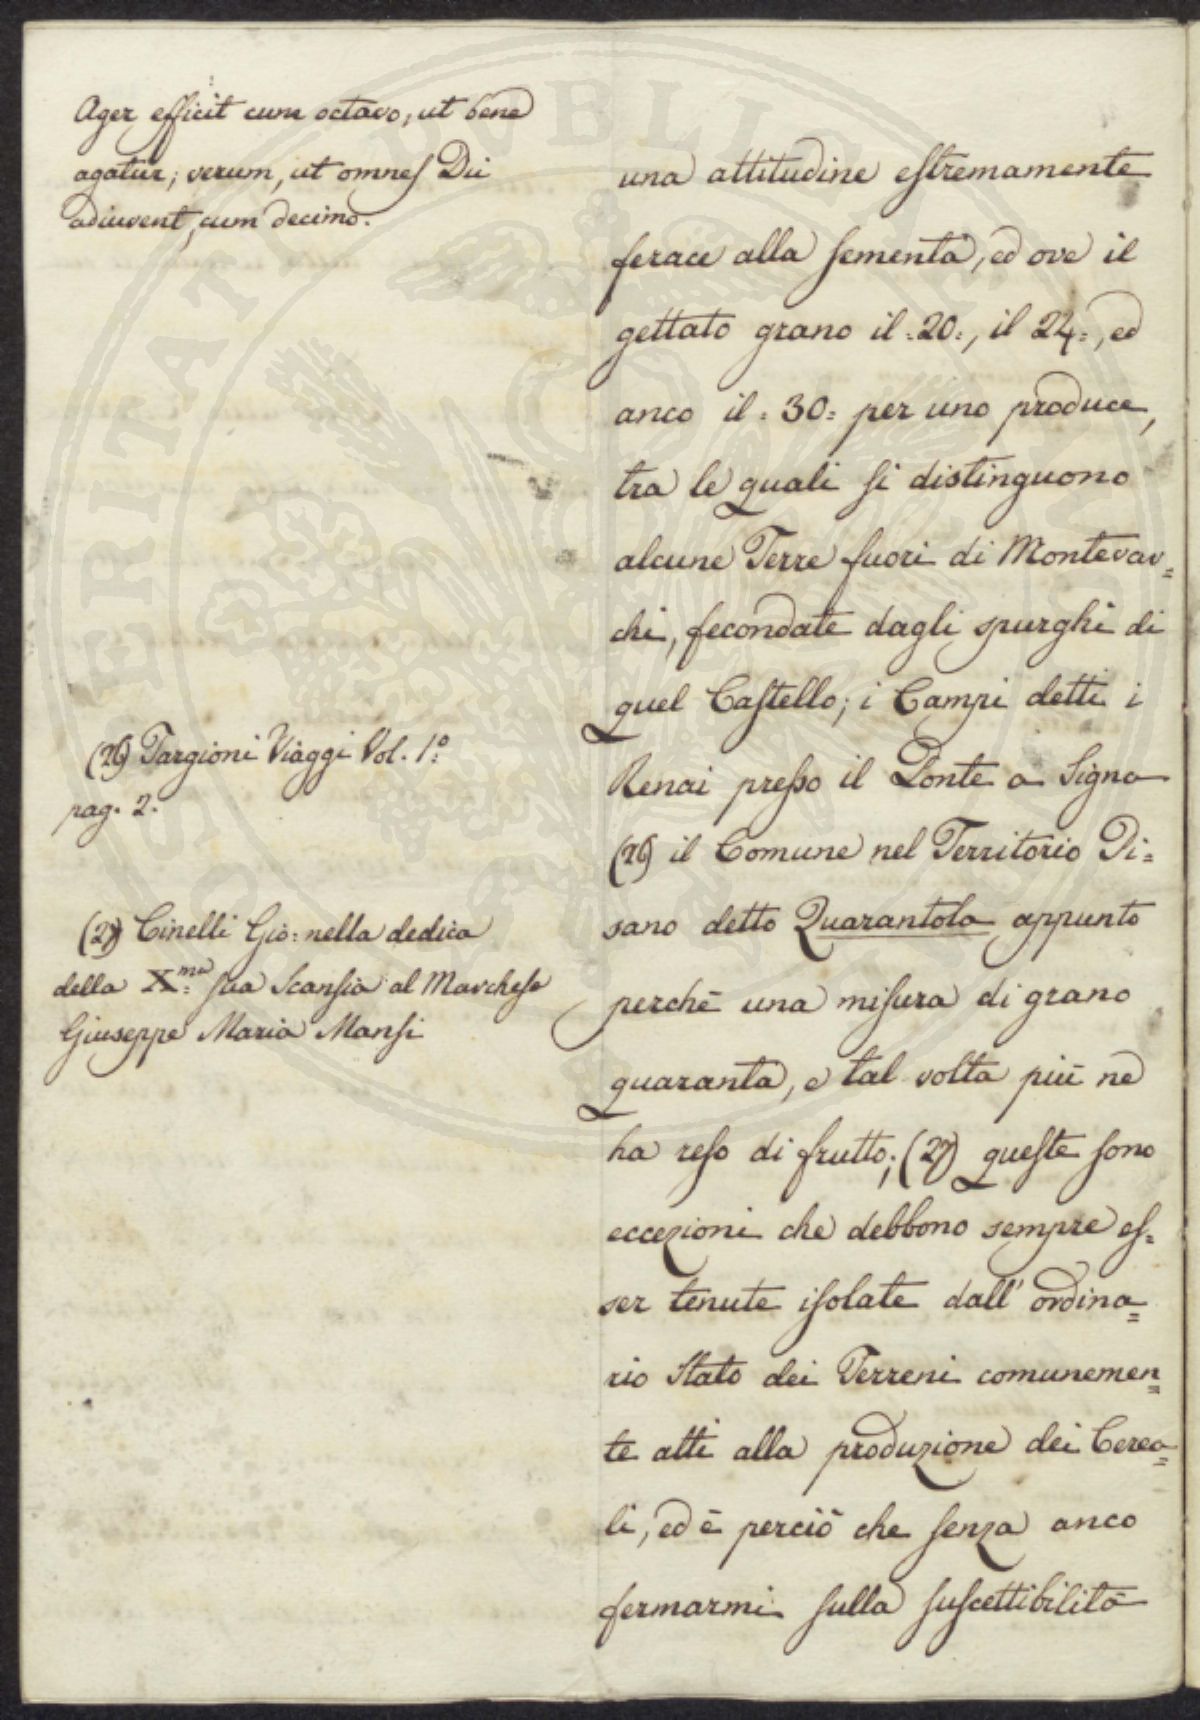 Ager efficit cum octavo, ut bene
agatur; verum, ut omnes Dii
adiuvent, cum decimo.
(26) Targioni Viaggi Vol. 1.º
pag. 2.
(27) Cinelli Gio: nella dedica
della X.ma sua Scansia al Marchese
Giuseppe Maria Mansi
una attitudine estremamente
ferace alla sementa, ed ove il
gettato grano il :20:, il 24:, ed
anco il : 30: per uno produce,
tra le quali si distinguono
alcune Terre fuori di Montevar=
chi, fecondate dagli spurghi di
quel Castello; i Campi detti i
Renai presso il Ponte a Signa
(26) il Comune nel Territorio Pi=
sano detto Quarantola appunto
perchè una misura di grano
quaranta, e tal volta più ne
ha reso di frutto; (27) queste sono
eccezioni che debbono sempre es=
ser tenute isolate dall' ordina=
rio stato dei Terreni comunemen=
te atti alla produzione dei Cerea=
li, ed è perciò che senza anco
fermarmi sulla suscettibilità